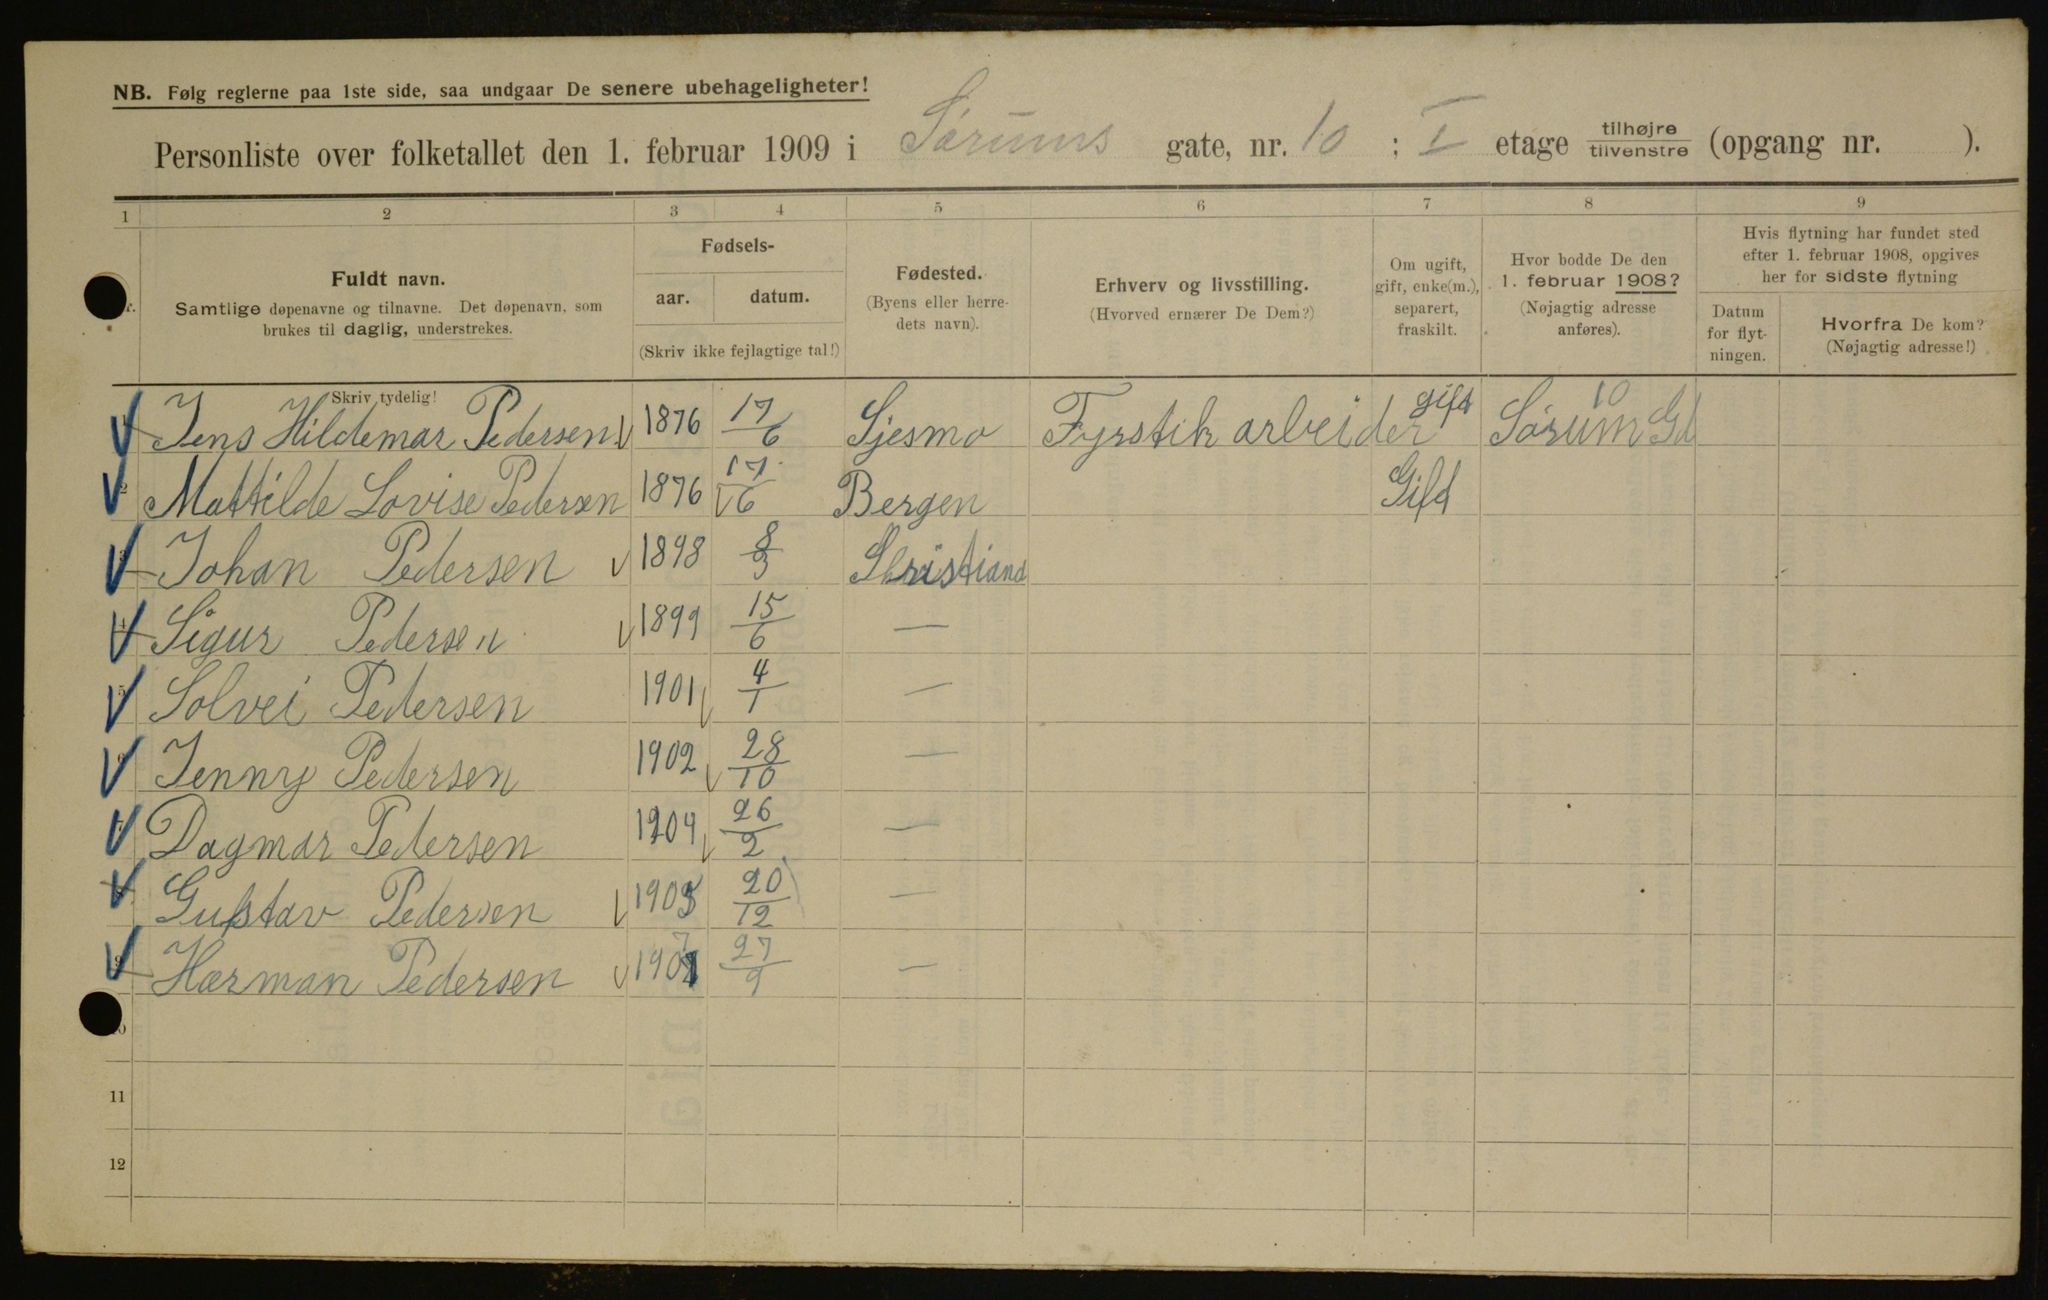 NB. Følg reglerne paa 1ste side, saa undgaar De senere ubehageligheter!
Personliste over folketallet den 1. februar 1909 i Sørums gate, nr. 10 ; I etage tilhøjre tilvenstre (opgang nr. ).
1 2 3 4 5 6 7 8 9
Fuldt navn.
Samtlige døpenavne og tilnavne. Det døpenavn, som
brukes til daglig, understrekes.
Skriv tydelig!
Fødsels-
aar. datum.
(Skriv ikke fejlagtige tal!)
Fødested.
(Byens eller herre-
dets navn).
Erhverv og livsstilling.
(Hvorved ernærer De Dem?)
Om ugift,
gift, enke(m.),
separert,
fraskilt.
Hvor bodde De den
1. februar 1908?
(Nøjagtig adresse
anføres).
Hvis flytning har fundet sted
efter 1. februar 1908, opgives
her for sidste flytning
Datum
for flyt-
ningen.
Hvorfra De kom?
(Nøjagtig adresse!)
1 Jens Hildemar Pedersen 1876 17/6 Sjesmo Fyrstik arbeider gift Sørum Gd 10
2 Mattilde Lovise Pedersen 1876 17/6 Bergen Gift
3 Johan Pedersen 1898 8/3 Kristiana
4 Sigur Pedersen 1899 15/6 —
5 Solvei Pedersen 1901 4/1 —
6 Jenny Pedersen 1902 28/10 —
7 Dagmar Pedersen 1904 26/2 —
8 Gustav Pedersen 1905 20/12 —
9 Hærman Pedersen 1907 27/9 —
10
11
12